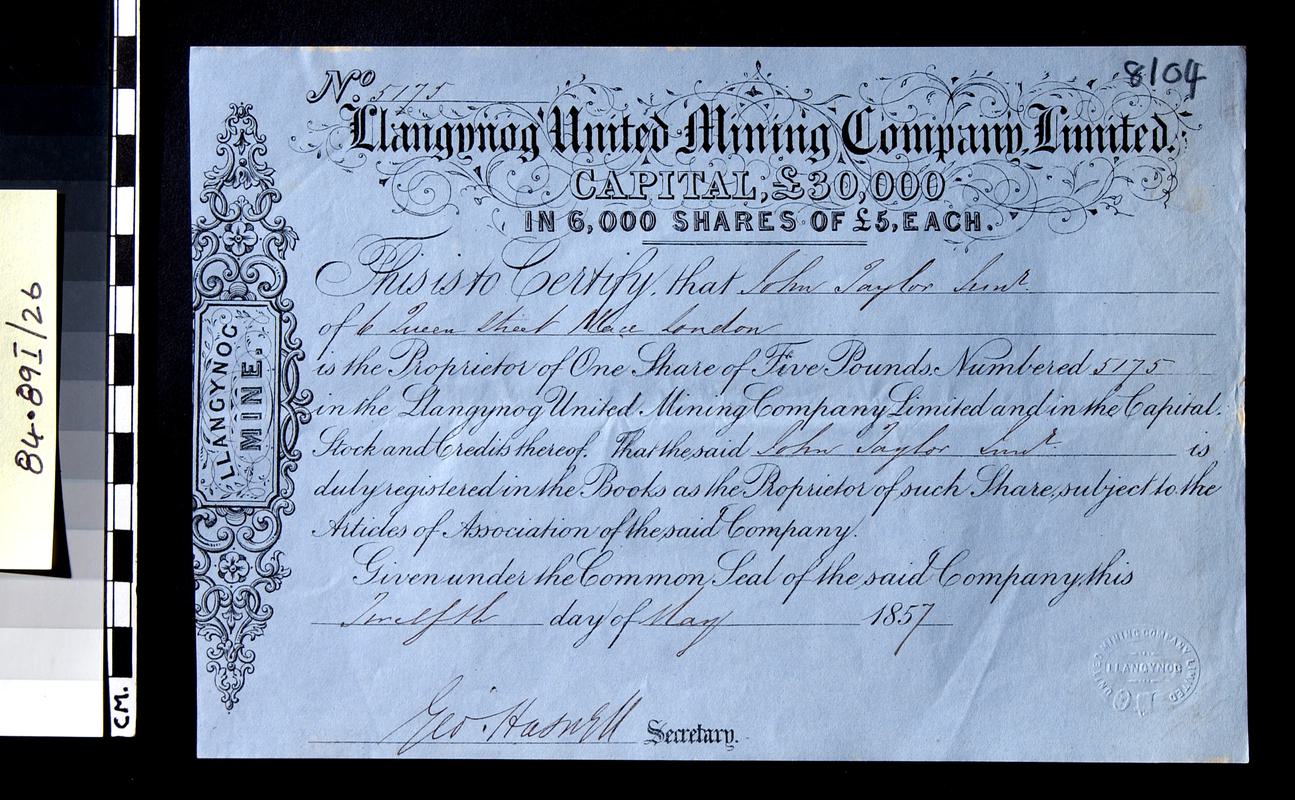 8104
No 5175
Llangynog United Mining Company, Limited.
CAPITAL, £30,000
IN 6,000 SHARES OF £5, EACH.
This is to Certify, that John Taylor Junr.
of 6 Queen Street Place London
is the Proprietor of One Share of Five Pounds Numbered 5175
in the Llangynog United Mining Company Limited and in the Capital
Stock and Credits thereof. That the said John Taylor Junr. is
duly registered in the Books as the Proprietor of such Share, subject to the
Articles of Association of the said Company.
Given under the Common Seal of the said Company, this
Twelfth day of May 1857
Geo. Haswell Secretary.
LLANGYNOG
MINE.
UNITED MINING COMPANY LIMITED
LLANGYNOG
84.89I/26
CM.